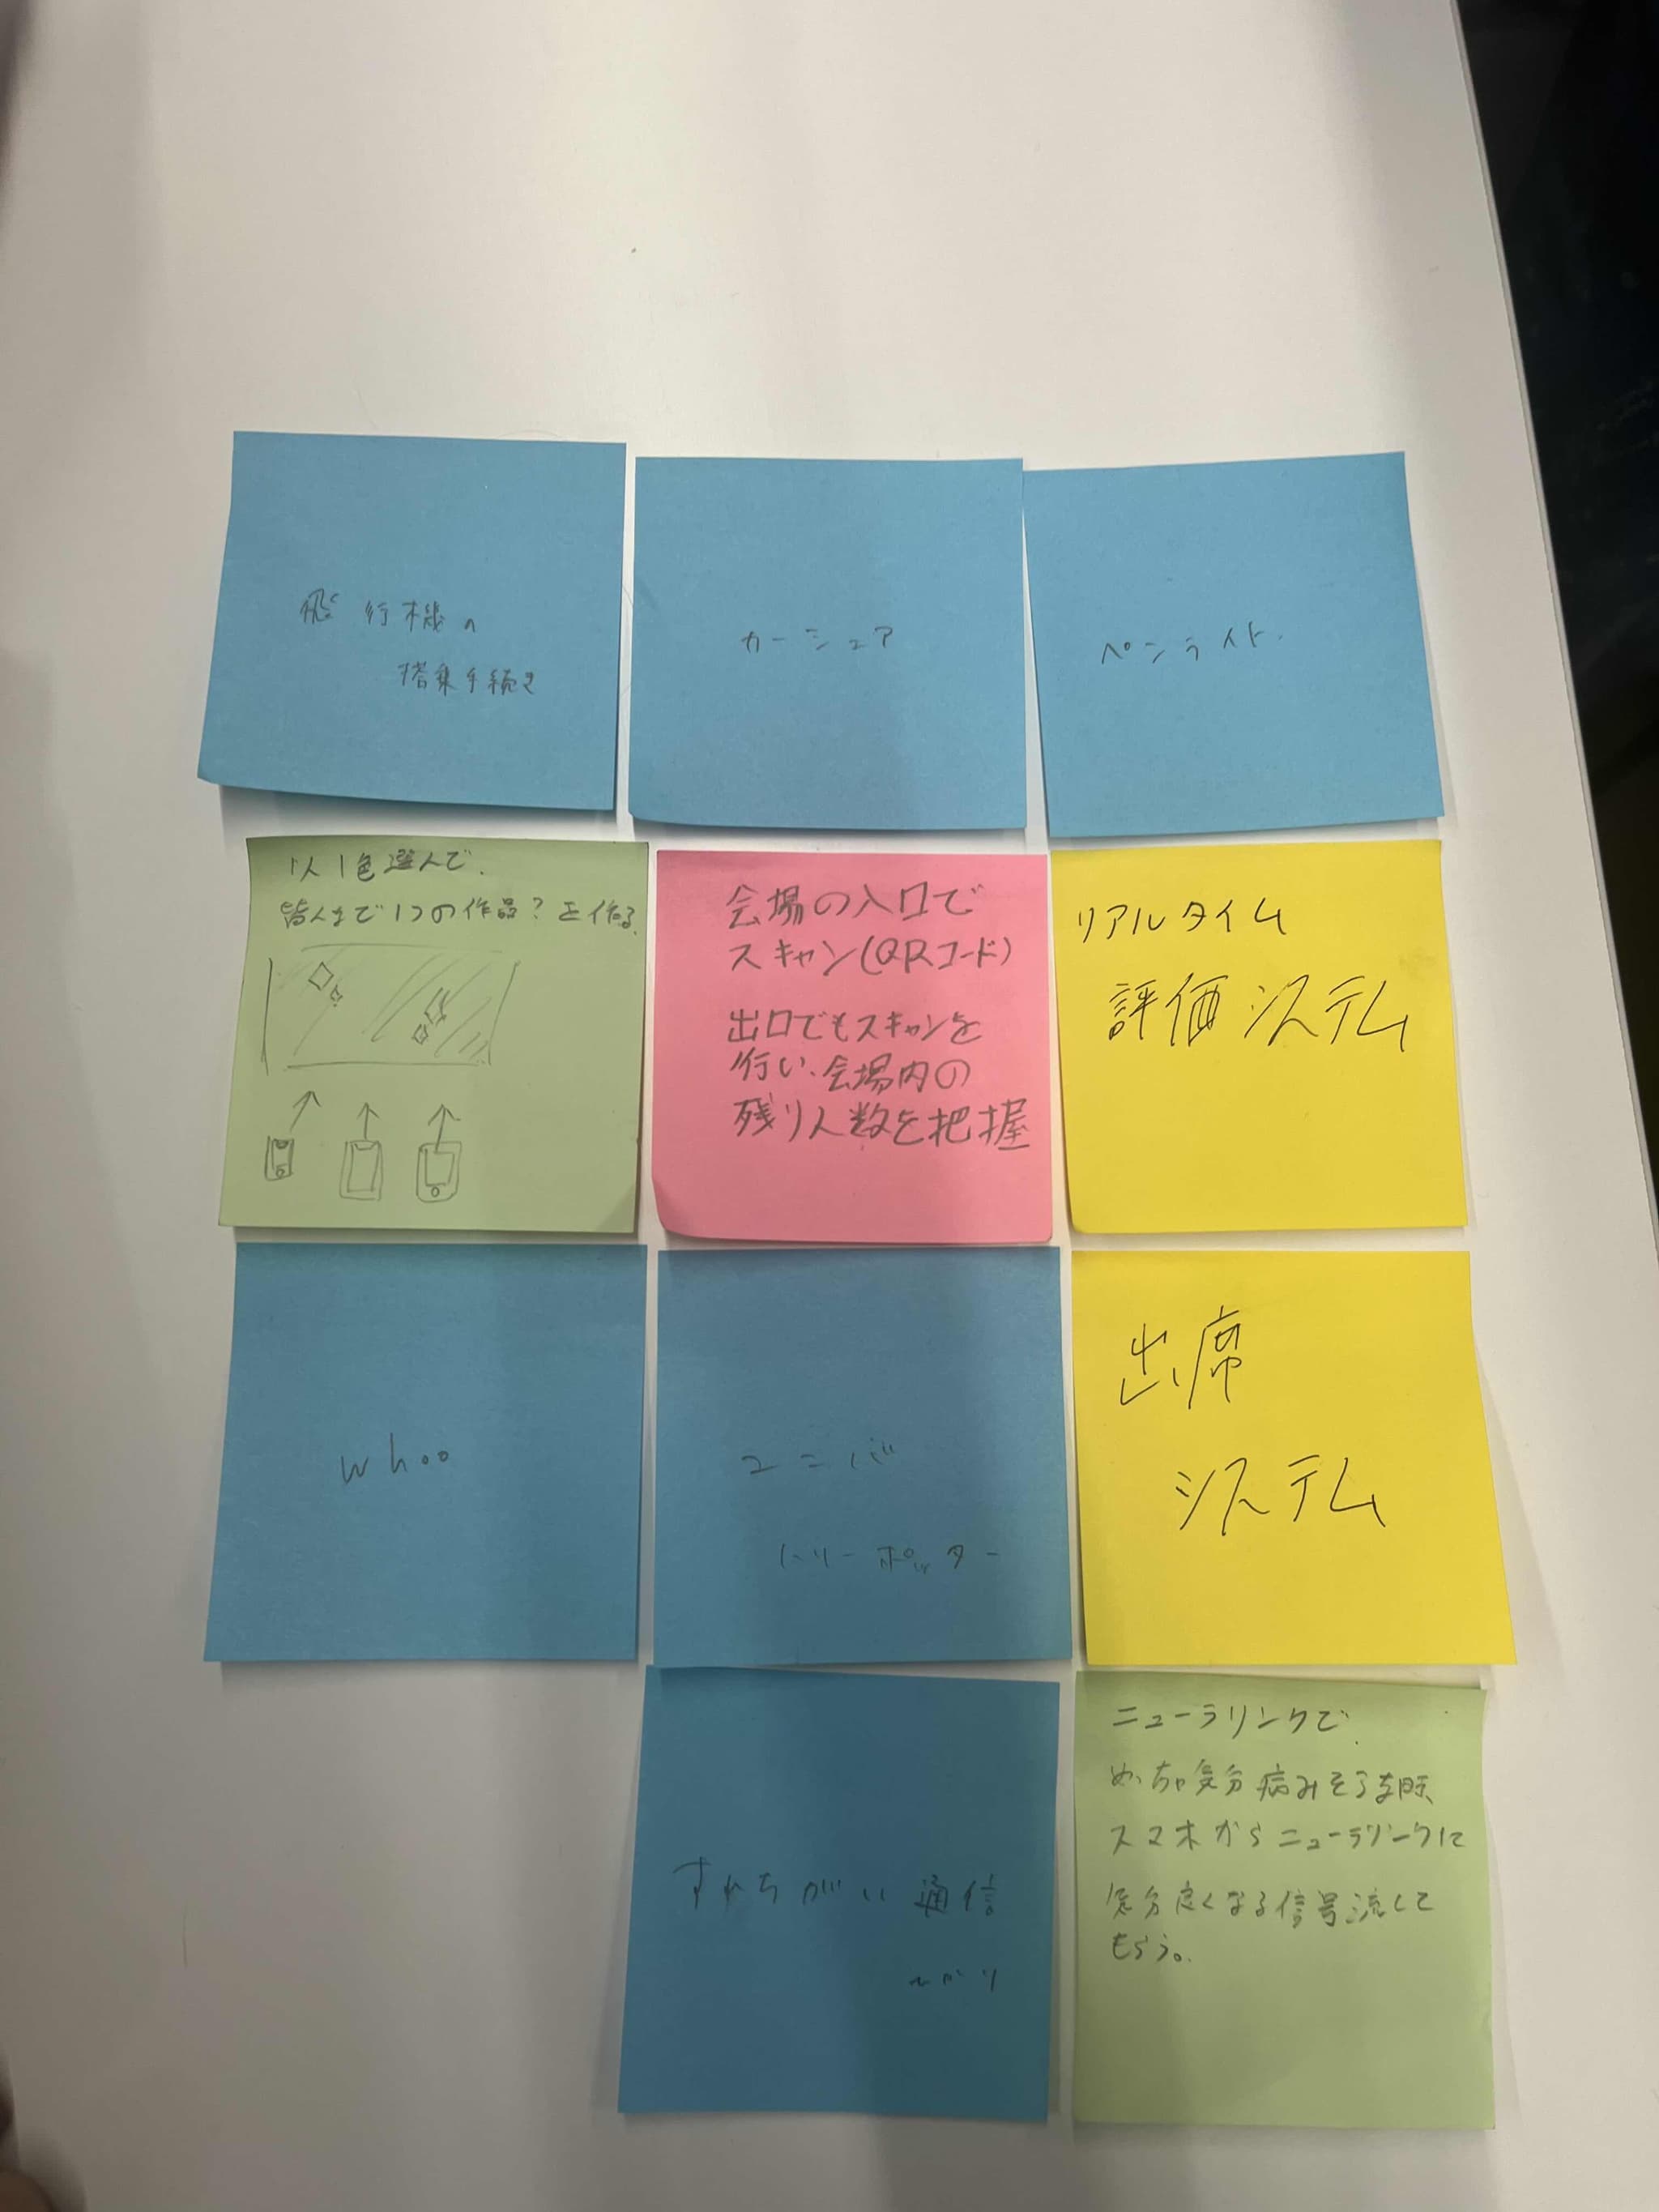 飛行機の
搭乗手続き
カーシェア
ペンライト.
1人1色選んで.
皆んなで1つの作品?を作る.
会場の入口で
スキャン(QRコード)
出口でもスキャンを
行い、会場内の
残り人数を把握
リアルタイム
評価システム
whoo
ユニバ
ハリーポッター
出席
システム
すれちがい通信
ニューラリンクで、
めっちゃ気分病みそうな時、
スマホからニューラリンクに
気分良くなる信号流して
もらう。